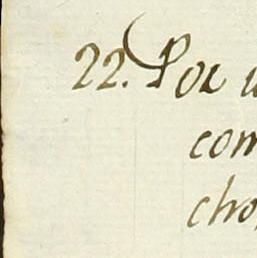 22. Por
com
cho